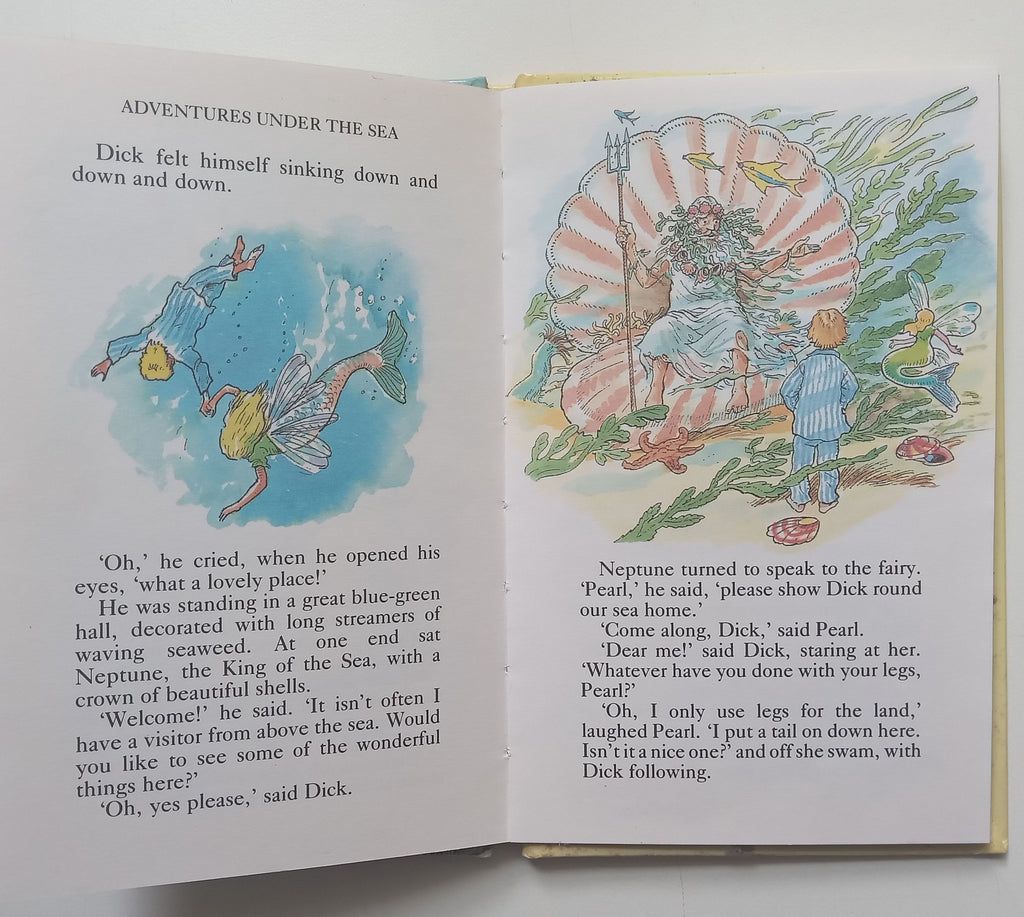 ADVENTURES UNDER THE SEA
Dick felt himself sinking down and
down and down.
‘Oh,’ he cried, when he opened his
eyes, ‘what a lovely place!’
He was standing in a great blue-green
hall, decorated with long streamers of
waving seaweed. At one end sat
Neptune, the King of the Sea, with a
crown of beautiful shells.
‘Welcome!’ he said. ‘It isn’t often I
have a visitor from above the sea. Would
you like to see some of the wonderful
things here?’
‘Oh, yes please,’ said Dick.
Neptune turned to speak to the fairy.
‘Pearl,’ he said, ‘please show Dick round
our sea home.’
‘Come along, Dick,’ said Pearl.
‘Dear me!’ said Dick, staring at her.
‘Whatever have you done with your legs,
Pearl?’
‘Oh, I only use legs for the land,’
laughed Pearl. ‘I put a tail on down here.
Isn’t it a nice one?’ and off she swam, with
Dick following.